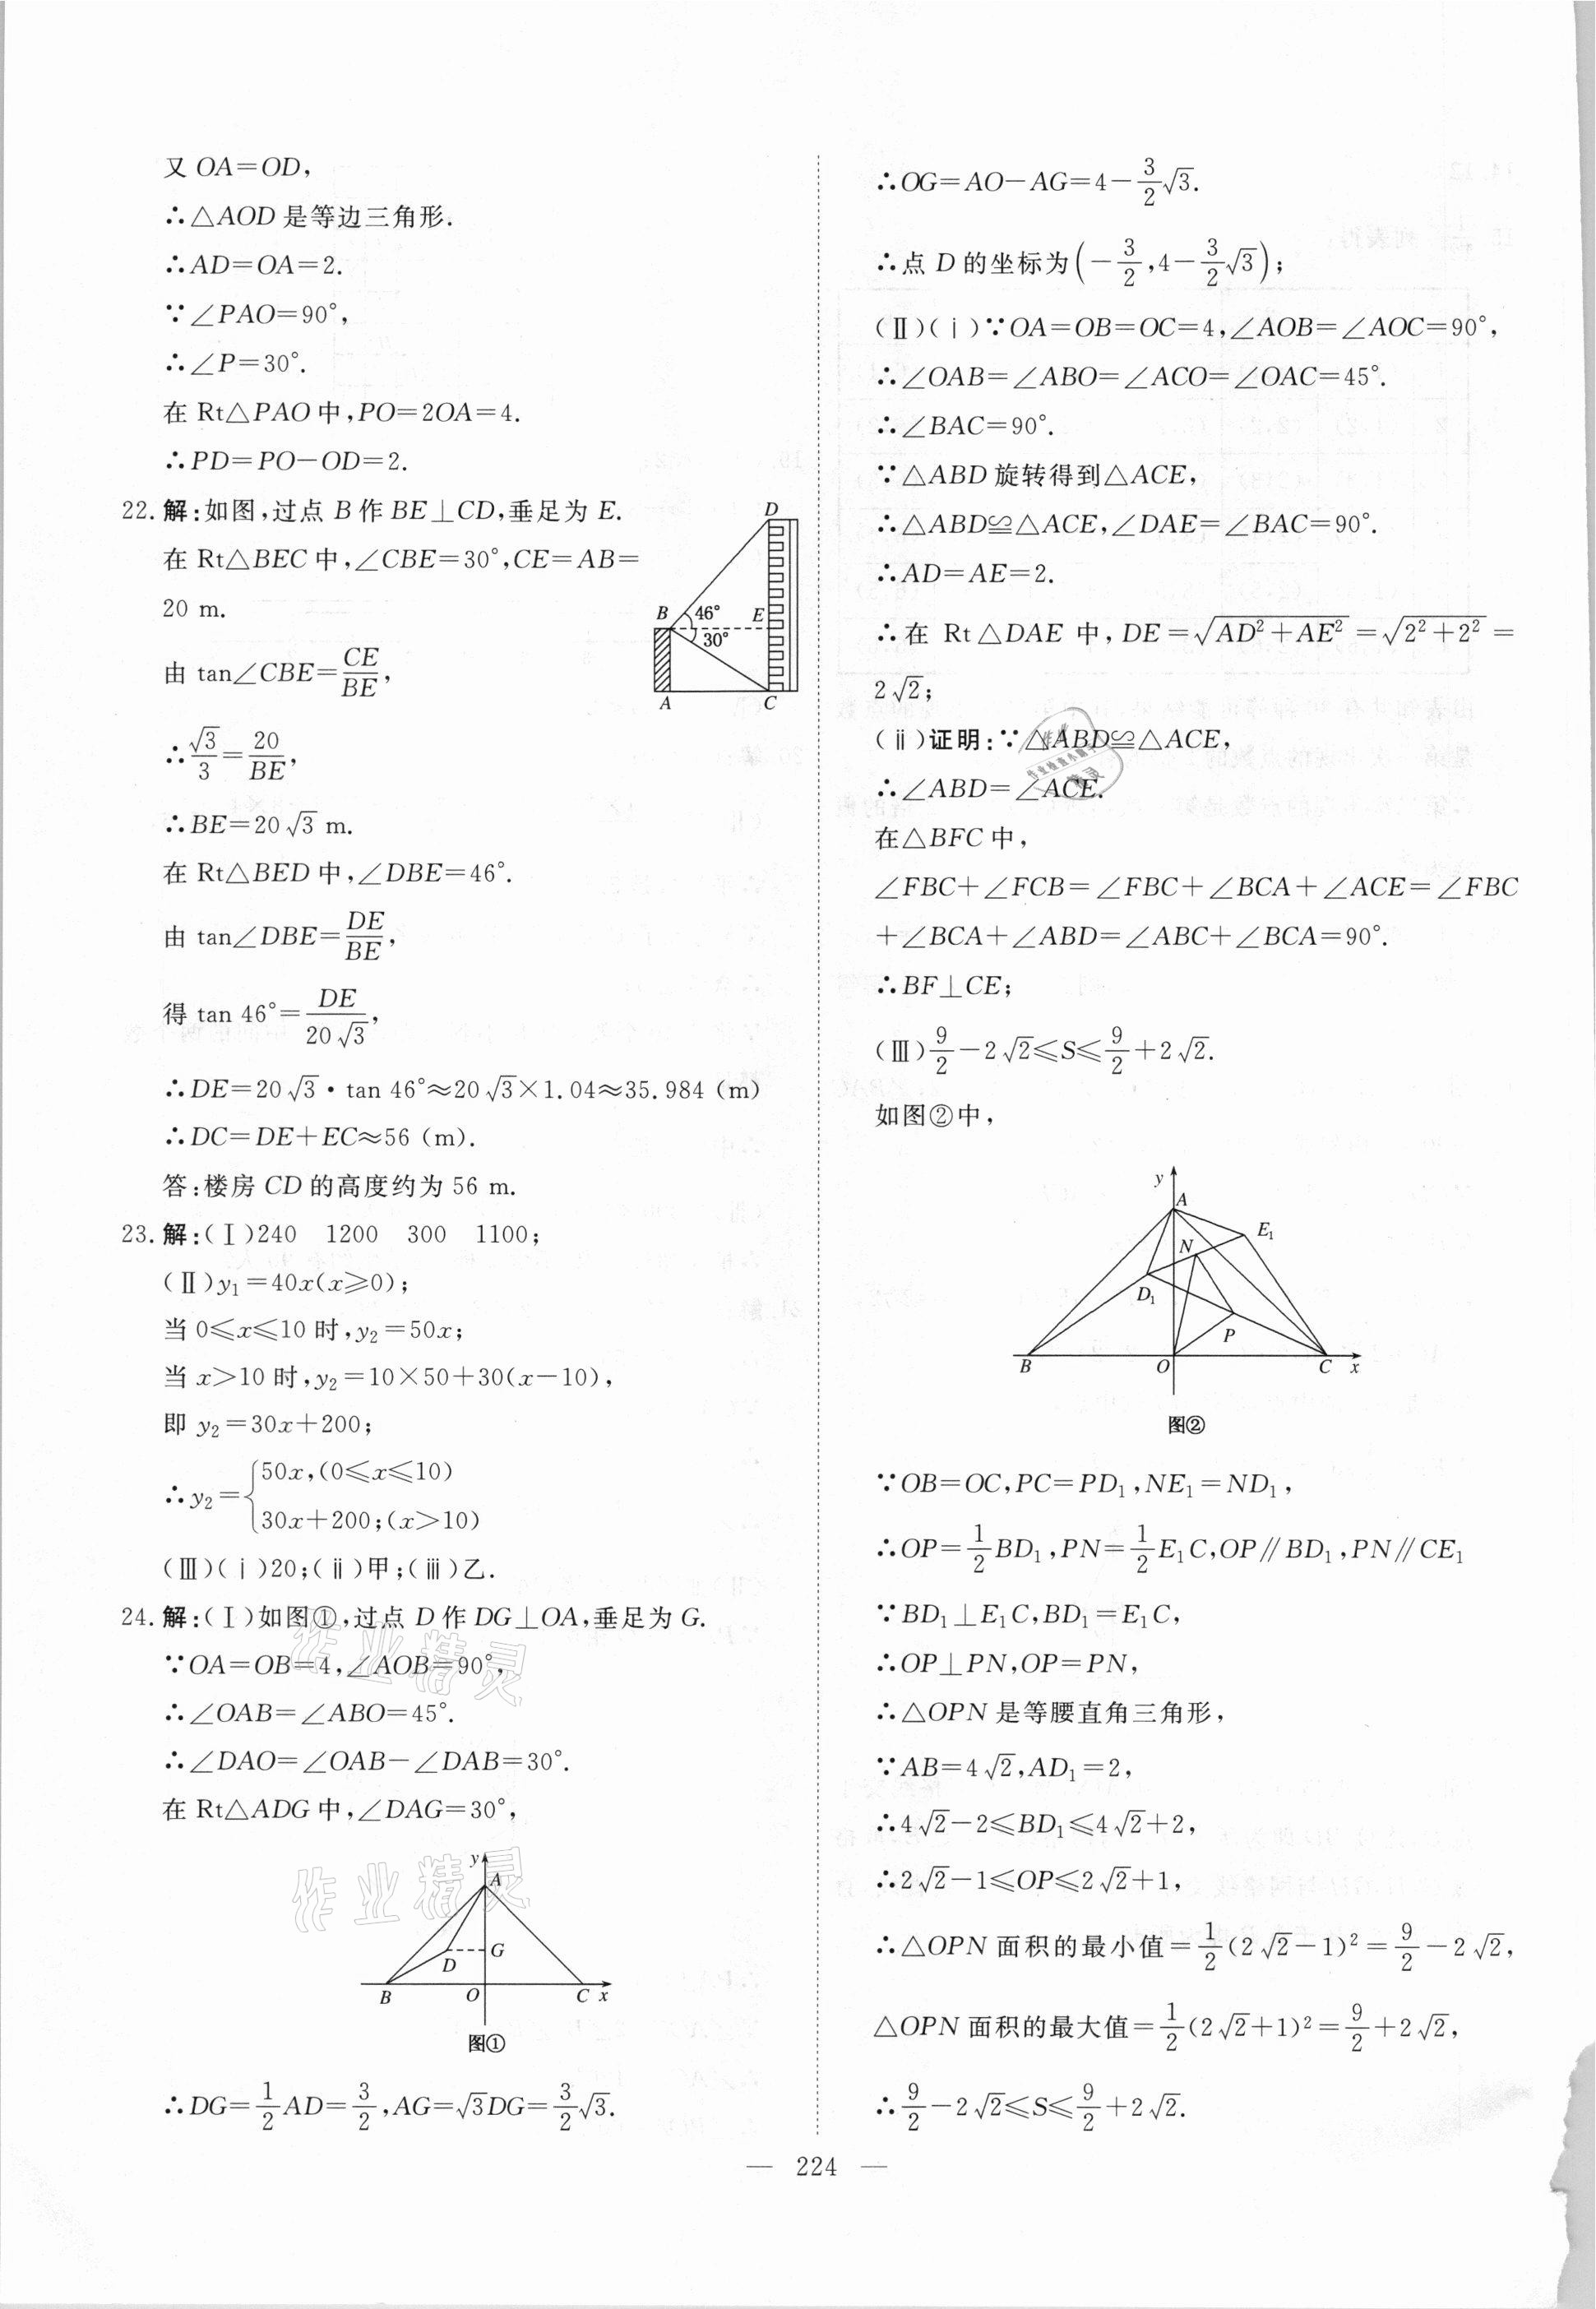 又 OA=OD,
∴△AOD 是等边三角形.
∴AD=OA=2.
∵∠PAO=90°,
∴∠P=30°.
在 Rt△PAO 中,PO=2OA=4.
∴PD=PO-OD=2.
22. 解:如图,过点 B 作 BE⊥CD,垂足为 E.
在 Rt△BEC 中,∠CBE=30°,CE=AB=
20 m.
由 tan∠CBE=CE/BE,
∴√3/3=20/BE,
∴BE=20√3 m.
在 Rt△BED 中,∠DBE=46°.
由 tan∠DBE=DE/BE,
得 tan 46°=DE/20√3,
∴DE=20√3·tan 46°≈20√3×1.04≈35.984 (m)
∴DC=DE+EC≈56 (m).
答:楼房 CD 的高度约为 56 m.
D
B 46° E
30°
A C
23. 解:(Ⅰ)240 1200 300 1100;
(Ⅱ)y₁=40x(x≥0);
当 0≤x≤10 时,y₂=50x;
当 x>10 时,y₂=10×50+30(x-10),
即 y₂=30x+200;
∴y₂={50x,(0≤x≤10)
30x+200;(x>10)
(Ⅲ)(ⅰ)20;(ⅱ)甲;(ⅲ)乙.
24. 解:(Ⅰ)如图①,过点 D 作 DG⊥OA,垂足为 G.
∵OA=OB=4,∠AOB=90°,
∴∠OAB=∠ABO=45°.
∴∠DAO=∠OAB-∠DAB=30°.
在 Rt△ADG 中,∠DAG=30°,
y
A
D G
B O C x
图①
∴DG=1/2AD=3/2,AG=√3DG=3/2√3.
∴OG=AO-AG=4-3/2√3.
∴点 D 的坐标为(-3/2,4-3/2√3);
(Ⅱ)(ⅰ)∵OA=OB=OC=4,∠AOB=∠AOC=90°,
∴∠OAB=∠ABO=∠ACO=∠OAC=45°.
∴∠BAC=90°.
∵△ABD 旋转得到△ACE,
∴△ABD≌△ACE,∠DAE=∠BAC=90°.
∴AD=AE=2.
∴在 Rt△DAE 中,DE=√(AD²+AE²)=√(2²+2²)=
2√2;
(ⅱ)证明:∵△ABD≌△ACE,
∴∠ABD=∠ACE.
在△BFC 中,
∠FBC+∠FCB=∠FBC+∠BCA+∠ACE=∠FBC
+∠BCA+∠ABD=∠ABC+∠BCA=90°.
∴BF⊥CE;
(Ⅲ)9/2-2√2≤S≤9/2+2√2.
如图②中,
y
A
E₁
N
D₁
P
B O C x
图②
∵OB=OC,PC=PD₁,NE₁=ND₁,
∴OP=1/2BD₁,PN=1/2E₁C,OP∥BD₁,PN∥CE₁
∵BD₁⊥E₁C,BD₁=E₁C,
∴OP⊥PN,OP=PN,
∴△OPN 是等腰直角三角形,
∵AB=4√2,AD₁=2,
∴4√2-2≤BD₁≤4√2+2,
∴2√2-1≤OP≤2√2+1,
∴△OPN 面积的最小值=1/2(2√2-1)²=9/2-2√2,
△OPN 面积的最大值=1/2(2√2+1)²=9/2+2√2,
∴9/2-2√2≤S≤9/2+2√2.
— 224 —
作业精灵
作业精灵